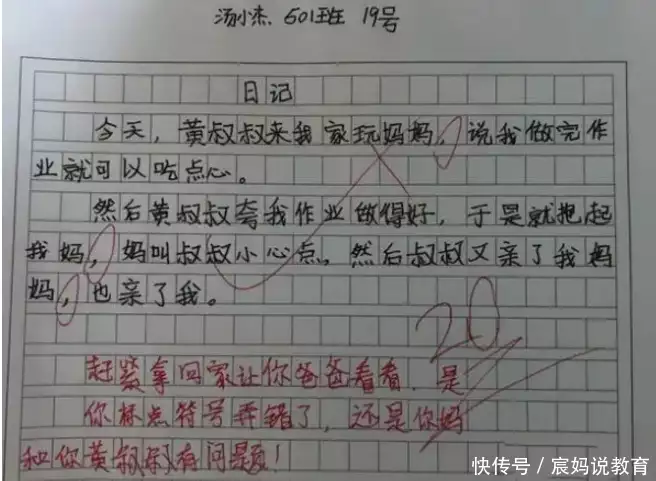 汤小杰 601班 19号
日记
今天，黄叔叔来我家玩妈妈，说我做完作
业就可以吃点心。
然后黄叔叔夸我作业做得好，于是就抱起
我妈，妈叫叔叔小心点，然后叔叔又亲了我妈
妈，也亲了我。
20
赶紧拿回家让你爸爸看看，是
你标点符号弄错了，还是你妈
和你黄叔叔有问题！
快传号/宸妈说教育